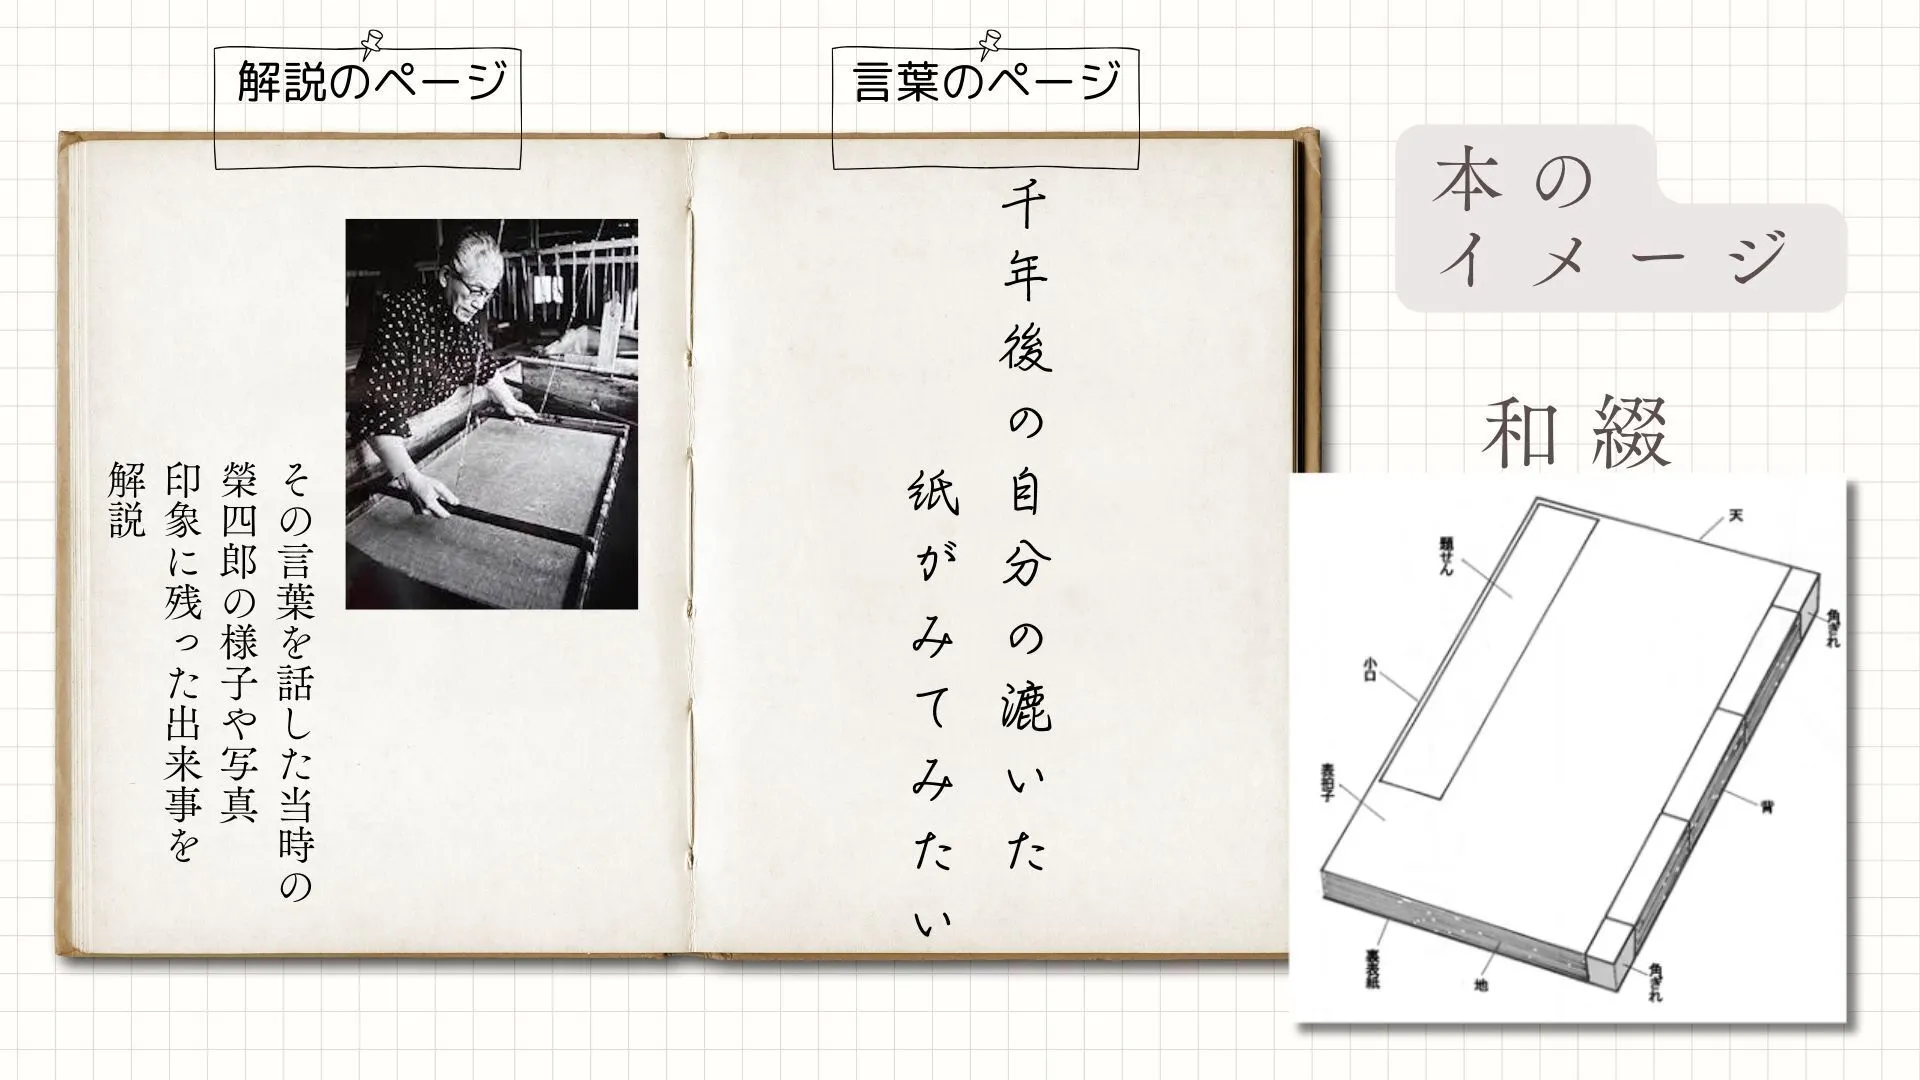 本の
イメージ
和綴
言葉のページ
千年後の自分の漉いた
紙がみてみたい
解説のページ
その言葉を話した当時の
榮四郎の様子や写真
印象に残った出来事を
解説
天
題せん
角ぎれ
小口
表拍子
背
裏表紙
地
角ぎれ